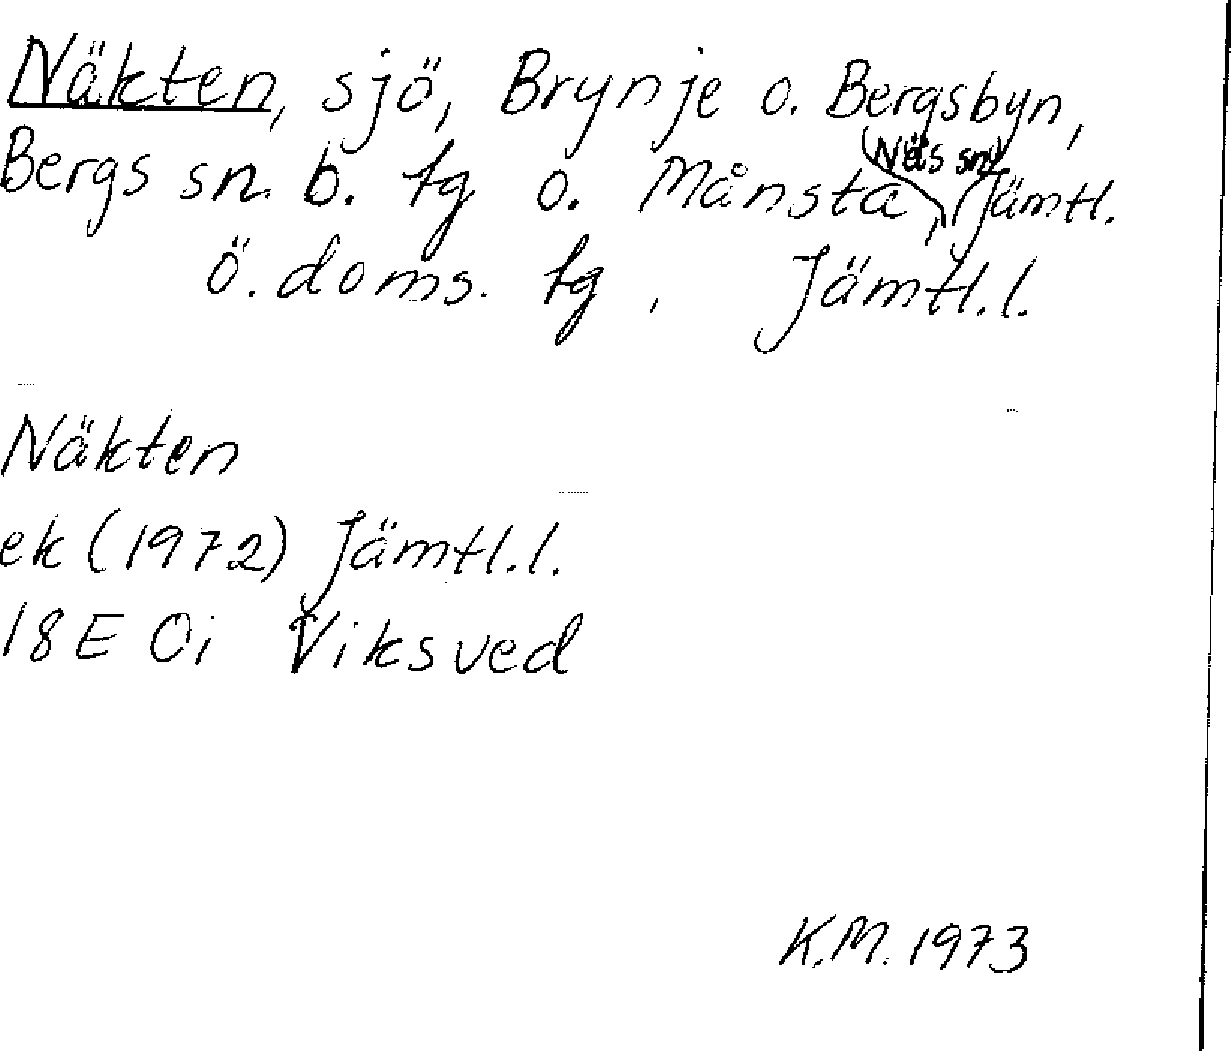 Näkten, sjö, Brynje o. Bergsbyn,
Bergs sn. b. tg o. Månsta (Näs sn), Jämtl.
ö. doms. tg, Jämtl.l.
Näkten
ek (1972) Jämtl.l.
18E Oi Viksved
K.M. 1973